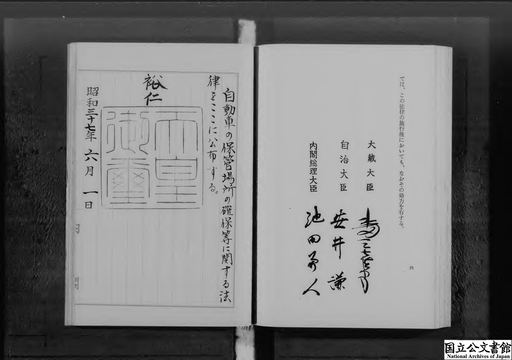 ては、この法律の施行後においても、なおその効力を有する。
大蔵大臣
自治大臣 安井謙
内閣総理大臣 池田勇人
自動車の保管場所の確保等に関する法
律をここに公布する。
裕仁
天皇
御璽
昭和三十七年 六月 一日
国立公文書館
National Archives of Japan